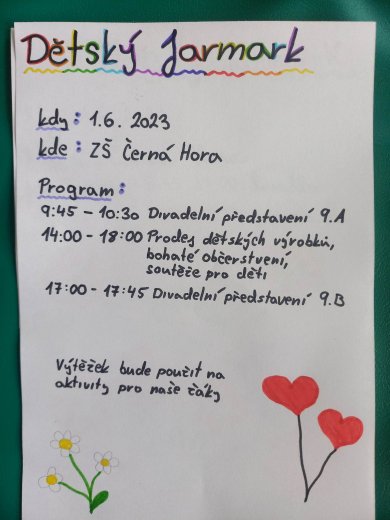 Dětský Jarmark
kdy: 1.6. 2023
kde: ZŠ Černá Hora
Program:
9:45 - 10:30 Divadelní představení 9.A
14:00 - 18:00 Prodej dětských výrobků,
bohaté občerstvení,
soutěže pro děti
17:00 - 17:45 Divadelní představení 9.B
Výtěžek bude použit na
aktivity pro naše žáky